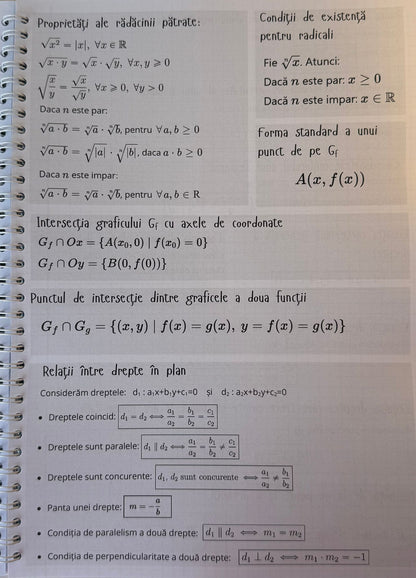 Proprietăți ale rădăcinii pătrate:
√x² = |x|, ∀x ∈ ℝ
√x · y = √x · √y, ∀x, y ⩾ 0
√x/y = √x/√y, ∀x ⩾ 0, ∀y > 0
Daca n este par:
ⁿ√a · b = ⁿ√a · ⁿ√b, pentru ∀a, b ≥ 0
ⁿ√a · b = ⁿ√|a| · ⁿ√|b|, daca a · b ≥ 0
Daca n este impar:
ⁿ√a · b = ⁿ√a · ⁿ√b, pentru ∀a, b ∈ R
Condiții de existență
pentru radicali
Fie ⁿ√x. Atunci:
Dacă n este par: x ≥ 0
Dacă n este impar: x ∈ ℝ
Forma standard a unui
punct de pe Gf
A(x, f(x))
Intersecția graficului Gf cu axele de coordonate
Gf ∩ Ox = {A(x₀, 0) | f(x₀) = 0}
Gf ∩ Oy = {B(0, f(0))}
Punctul de intersecție dintre graficele a doua funcții
Gf ∩ Gg = {(x, y) | f(x) = g(x), y = f(x) = g(x)}
Relații între drepte în plan
Considerăm dreptele: d₁ : a₁x+b₁y+c₁=0 și d₂ : a₂x+b₂y+c₂=0
• Dreptele coincid: d₁ = d₂ ⟺ a₁/a₂ = b₁/b₂ = c₁/c₂
• Dreptele sunt paralele: d₁ ∥ d₂ ⟺ a₁/a₂ = b₁/b₂ ≠ c₁/c₂
• Dreptele sunt concurente: d₁, d₂ sunt concurente ⟺ a₁/a₂ ≠ b₁/b₂
• Panta unei drepte: m = −a/b
• Condiția de paralelism a două drepte: d₁ ∥ d₂ ⟺ m₁ = m₂
• Condiția de perpendicularitate a două drepte: d₁ ⊥ d₂ ⟺ m₁ · m₂ = −1